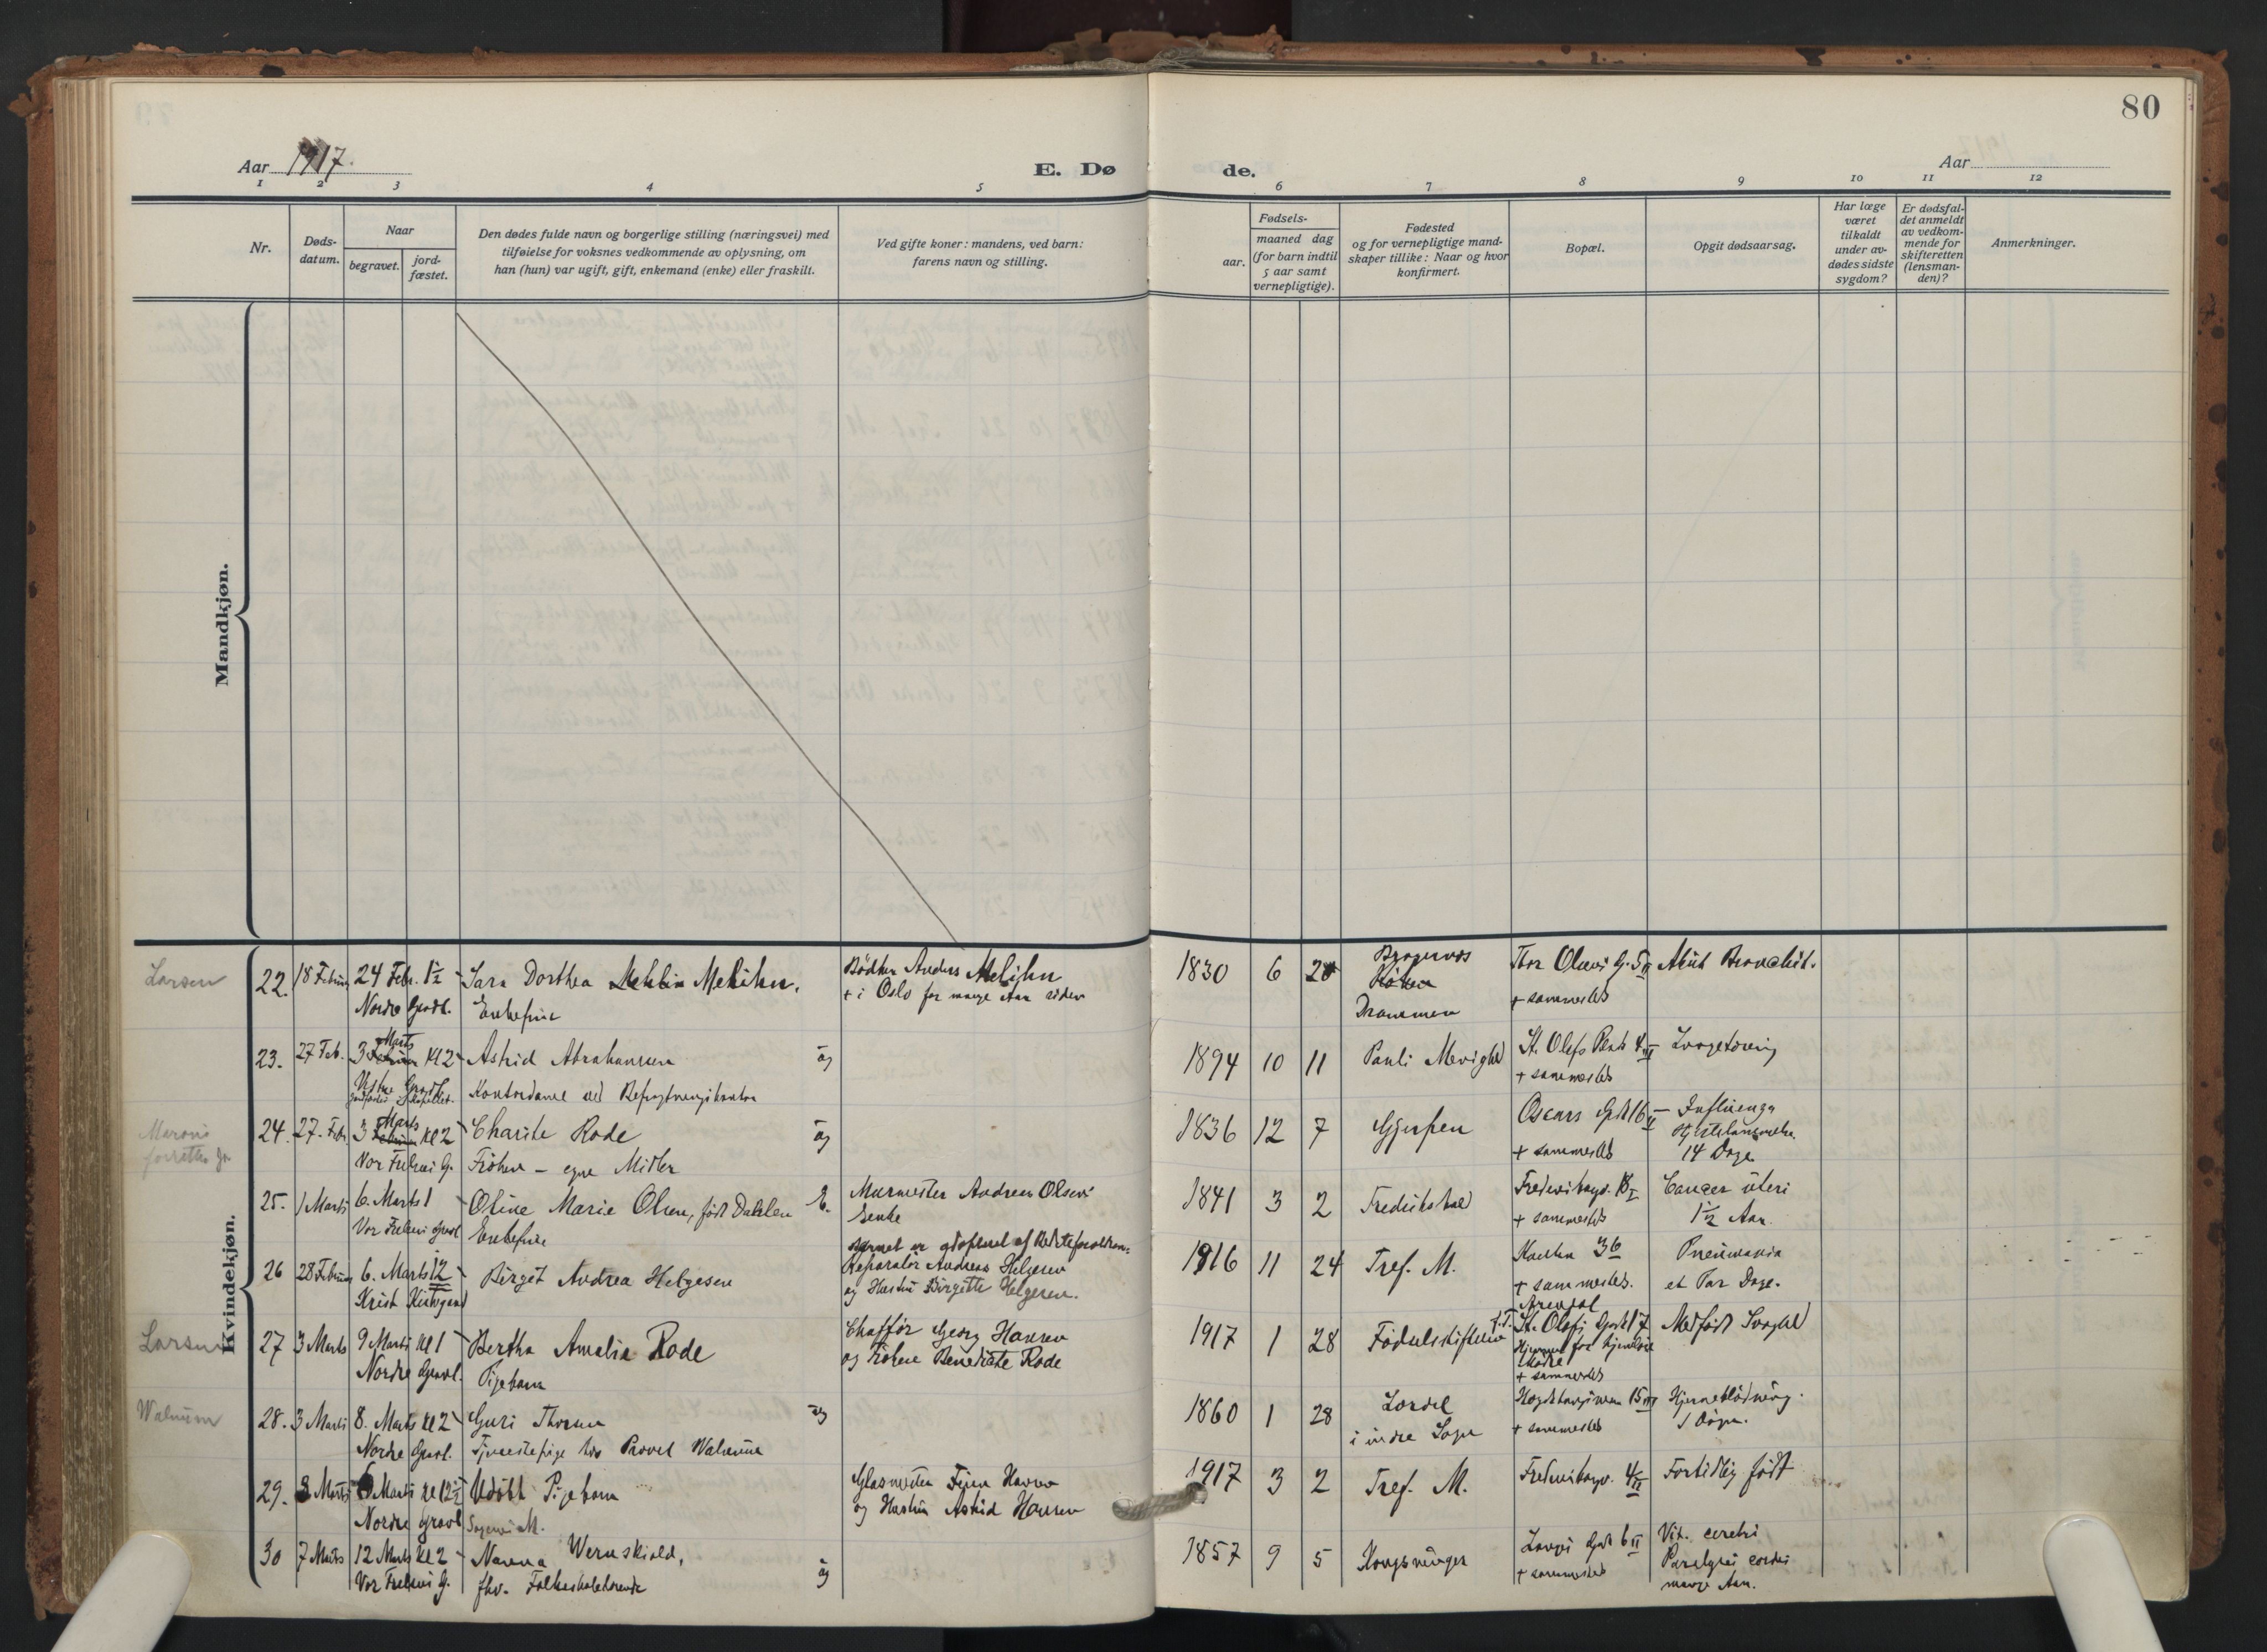 80
Aar 1917.
E. Døde.
Aar
1 2 3 4 5 6 7 8 9 10 11 12
Nr.
Døds-
datum.
Naar
begravet.
jord-
fæstet.
Den dødes fulde navn og borgerlige stilling (næringsvei) med
tilføielse for voksnes vedkommende av oplysning, om
han (hun) var ugift, gift, enkemand (enke) eller fraskilt.
Ved gifte koner: mandens, ved barn:
farens navn og stilling.
Fødsels-
aar.
maaned dag
(for barn indtil
5 aar samt
vernepligtige).
Fødested
og for vernepligtige mand-
skaper tillike: Naar og hvor
konfirmert.
Bopæl.
Opgit dødsaarsag.
Har læge
været
tilkaldt
under av-
dødes sidste
sygdom?
Er dødsfal-
det anmeldt
av vedkom-
mende for
skifteretten
(lensman-
den)?
Anmerkninger.
Mandkjøn.
Kvindekjøn.
Larsen 22. 18 Februar 24 Febr. 1½ Sara Dorthea Mehlin Melihn. Bødker Anders Melihn 1830 6 Bragernes Thor Olsens G. 5 II Akut Bronchit.
Nordre Gravl. Enkefrue + i Oslo for mange Aar siden Drammen + sammesteds
23. 27 Feb. 3 Marts Kl 2 Astrid Abrahamsen ug 1894 10 11 St. Olefs Plads 4 III
Vestre Gravl. Kontordame ved + sammesteds
24. 27. Febr. 3 Marts Kl 2 Charite Rode ug 1836 12 7 Gjerpen Oscars Gd 16 II Influenza
Vor Frelsers G. Frøken – egne Midler + sammesteds 14 Dage
25. 1 Marts 6. Marts 1 Oline Marie Olsen, født Dahlen E. Murmester Andreas Olsens 1841 3 2 Fredrikshald Fredensborgv. 18 I Cancer uteri
Vor Frelsers Gravl Enkefrue Enke + sammesteds 1½ Aar.
26 28 Februar 6. Marts 12 Birget Andrea Helgesen Barnet er adopteret af Bedsteforældrene 1916 11 24 Tref. M. 36 Pneumonia
Krist Kirkegaard Reparatør Andreas Helgesen + sammesteds. et Par Dage.
og Hustru Birgitte Helgesen.
Larsen 27 3 Marts 9 Marts Kl 1 Bertha Amalie Rode Chaffør Georg Hansen 1917 1 28 Fødselsstiftelsen Arendal
f.T. St. Olafs Gade 17 Medfødt Svaghed
Nordre Gravl. Pigebarn og Frøken Benedicte Rode Hjemmet for hjemløse
Mødre
+ sammesteds
Walnum 28. 3 Marts 8. Marts Kl 2 Guri Thorsen ug 1860 1 28 15 III Hjerneblødning.
Nordre Gravl. Tjenestepige hos Provst Walnum i indre Sogn + sammesteds 1 Døgn.
29. 2 Marts 6 Marts Kl 12½ Udøbt Pigebarn Glasmester Hansen 1917 3 2 Tref. M. Fredensborgv. 4 II Fortidlig født
Nordre Gravl og Hustru Astrid Hansen
30 7 Marts 12 Marts Kl 2 Nanna Wernskiold, ug 1857 9 5 Kongsvinger Langes Gade 6 II Vit. cerebri
Vor Frelsers G. fhv. Folkeskolelærerinde + sammesteds Paralysis cordis
mange Aar.